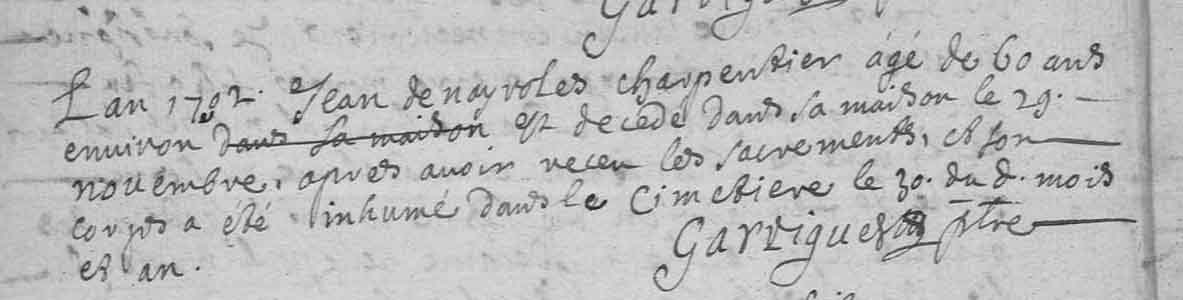 Garrigues
L'an 1702. Jean denoyroles charpentier âgé de 60 ans
environ dans sa maison est decedé dans sa maison le 29.
novembre, apres avoir receu les sacrements, et son
corps a été inhumé dans le Cimetiere le 30. du d. mois
et an.
Garrigues ptre